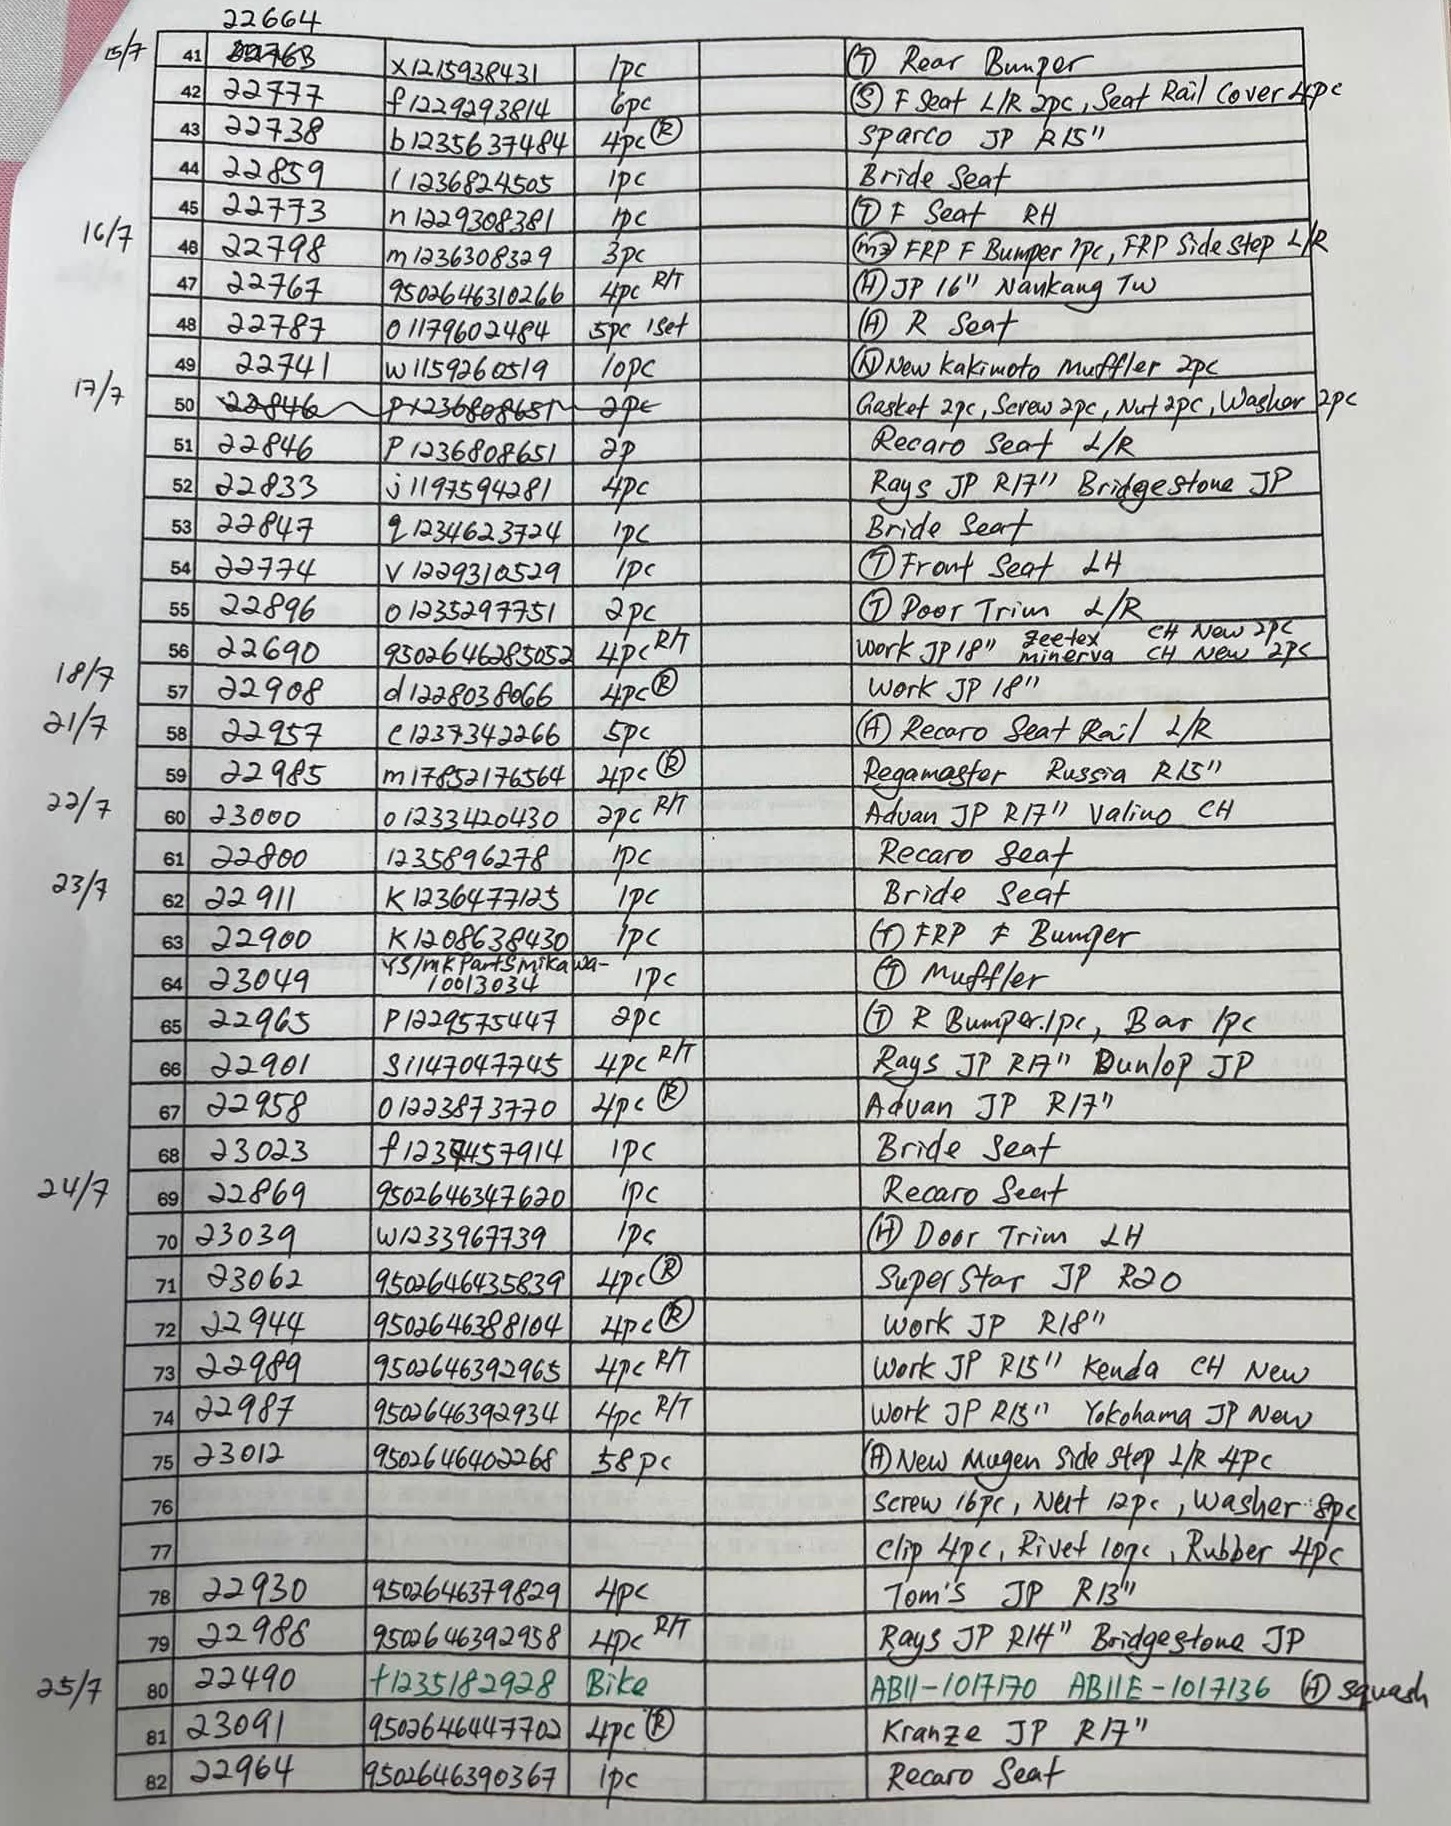 22664
15/7 41 x1215938431 1pc Ⓣ Rear Bumper
42 22777 f1229293814 6pc Ⓢ F Seat L/R 2pc, Seat Rail Cover 4pc
43 22738 b1235637484 4pc Ⓡ Sparco JP R15"
44 22859 l1236824505 1pc Bride Seat
45 22773 n1229308381 1pc Ⓣ F Seat RH
16/7 46 22798 m1236308329 3pc FRP F Bumper 1pc, FRP Side Step L/R
47 22767 9502646310266 4pc R/T Ⓗ JP 16" Nankang TW
48 22787 o1179602484 5pc 1set Ⓗ R Seat
49 22741 w1159260519 10pc Ⓝ New Kakimoto Muffler 2pc
17/7 50 22846 p1236808651 2pc Gasket 2pc, Screw 2pc, Nut 2pc, Washer 2pc
51 22846 p1236808651 2p Recaro Seat L/R
52 22833 j1197594281 4pc Rays JP R17" Bridgestone JP
53 22847 q1234623724 1pc Bride Seat
54 22774 v1229310529 1pc Ⓣ Front Seat LH
55 22896 o1235297751 2pc Ⓣ Door Trim L/R
56 22690 9502646285052 4pc R/T Work JP 18" Zeetex CH New 2pc
minerva CH New 2pc
18/7 57 22908 d1228038066 4pc Ⓡ Work JP 18"
21/7 58 22957 c1237342266 5pc Ⓗ Recaro Seat Rail L/R
59 22985 m17852176564 4pc Ⓡ Regamaster Russia R15"
22/7 60 23000 o1233420430 2pc R/T Advan JP R17" Valino CH
61 22800 1235896278 1pc Recaro Seat
23/7 62 22911 K1236477125 1pc Bride Seat
63 22900 K1208638430 1pc Ⓣ FRP F Bumper
64 23049 YS/mKPartSmikawa-
10013034 1pc Ⓣ Muffler
65 22965 p1229575447 2pc Ⓣ R Bumper 1pc, Bar 1pc
66 22901 S1147047745 4pc R/T Rays JP R17" Dunlop JP
67 22958 o1223873770 4pc Ⓡ Advan JP R17"
68 23023 f1237457914 1pc Bride Seat
24/7 69 22869 9502646347620 1pc Recaro Seat
70 23039 w1233967739 1pc Ⓗ Door Trim LH
71 23062 9502646435839 4pc Ⓡ Super Star JP R20
72 22944 9502646388104 4pc Ⓡ Work JP R18"
73 22989 9502646392965 4pc R/T Work JP R15" Kenda CH New
74 22987 9502646392934 4pc R/T Work JP R15" Yokohama JP New
75 23012 9502646402268 58pc Ⓗ New Mugen Side Step L/R 4pc
76 Screw 16pc, Nut 12pc, Washer 8pc
77 Clip 4pc, Rivet 10pc, Rubber 4pc
78 22930 9502646379829 4pc Tom's JP R13"
79 22988 9502646392958 4pc R/T Rays JP R14" Bridgestone JP
25/7 80 22490 f1235182928 Bike AB11-1017170 AB11E-1017136 Ⓗ squash
81 23091 9502646447702 4pc Ⓡ Kranze JP R17"
82 22964 9502646390367 1pc Recaro Seat